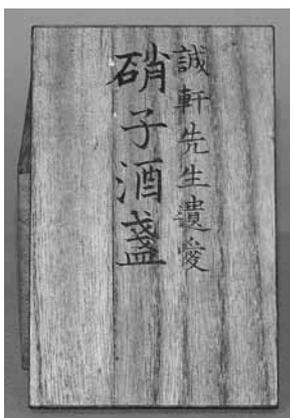 誠軒先生遺愛
硝子酒盞